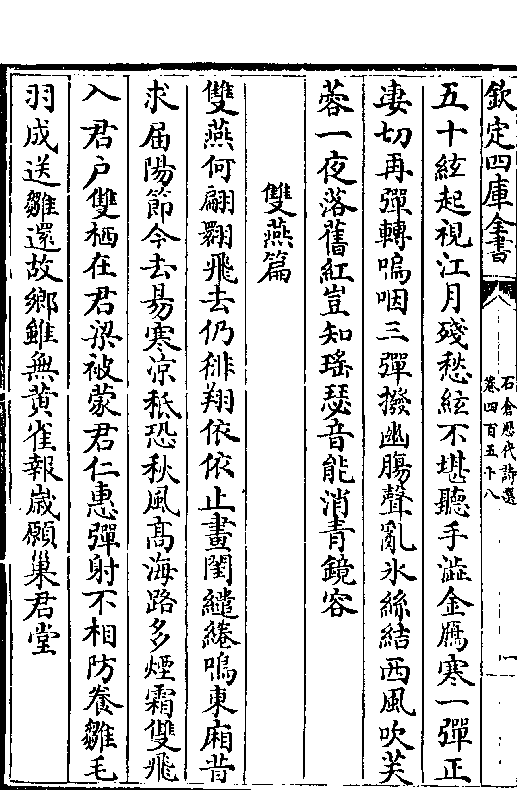 欽定四庫全書
石倉歷代詩選
卷四百五十八
五十絃起視江月殘愁絃不堪聽手澁金鴈寒一彈正
凄切再彈轉嗚咽三彈撥幽腸聲亂氷絲結西風吹芙
蓉一夜落舊紅豈知瑤瑟音能消青鏡容
雙燕篇
雙燕何翩翾飛去仍徘翔依依止畫閨繾綣鳴東廂昔
求届陽節今去昜寒涼秪恐秋風髙海路多煙霜雙飛
入君户雙栖在君梁被蒙君仁惠彈射不相防養雛毛
羽成送雛還故鄉雖無黄雀報嵗願巢君堂